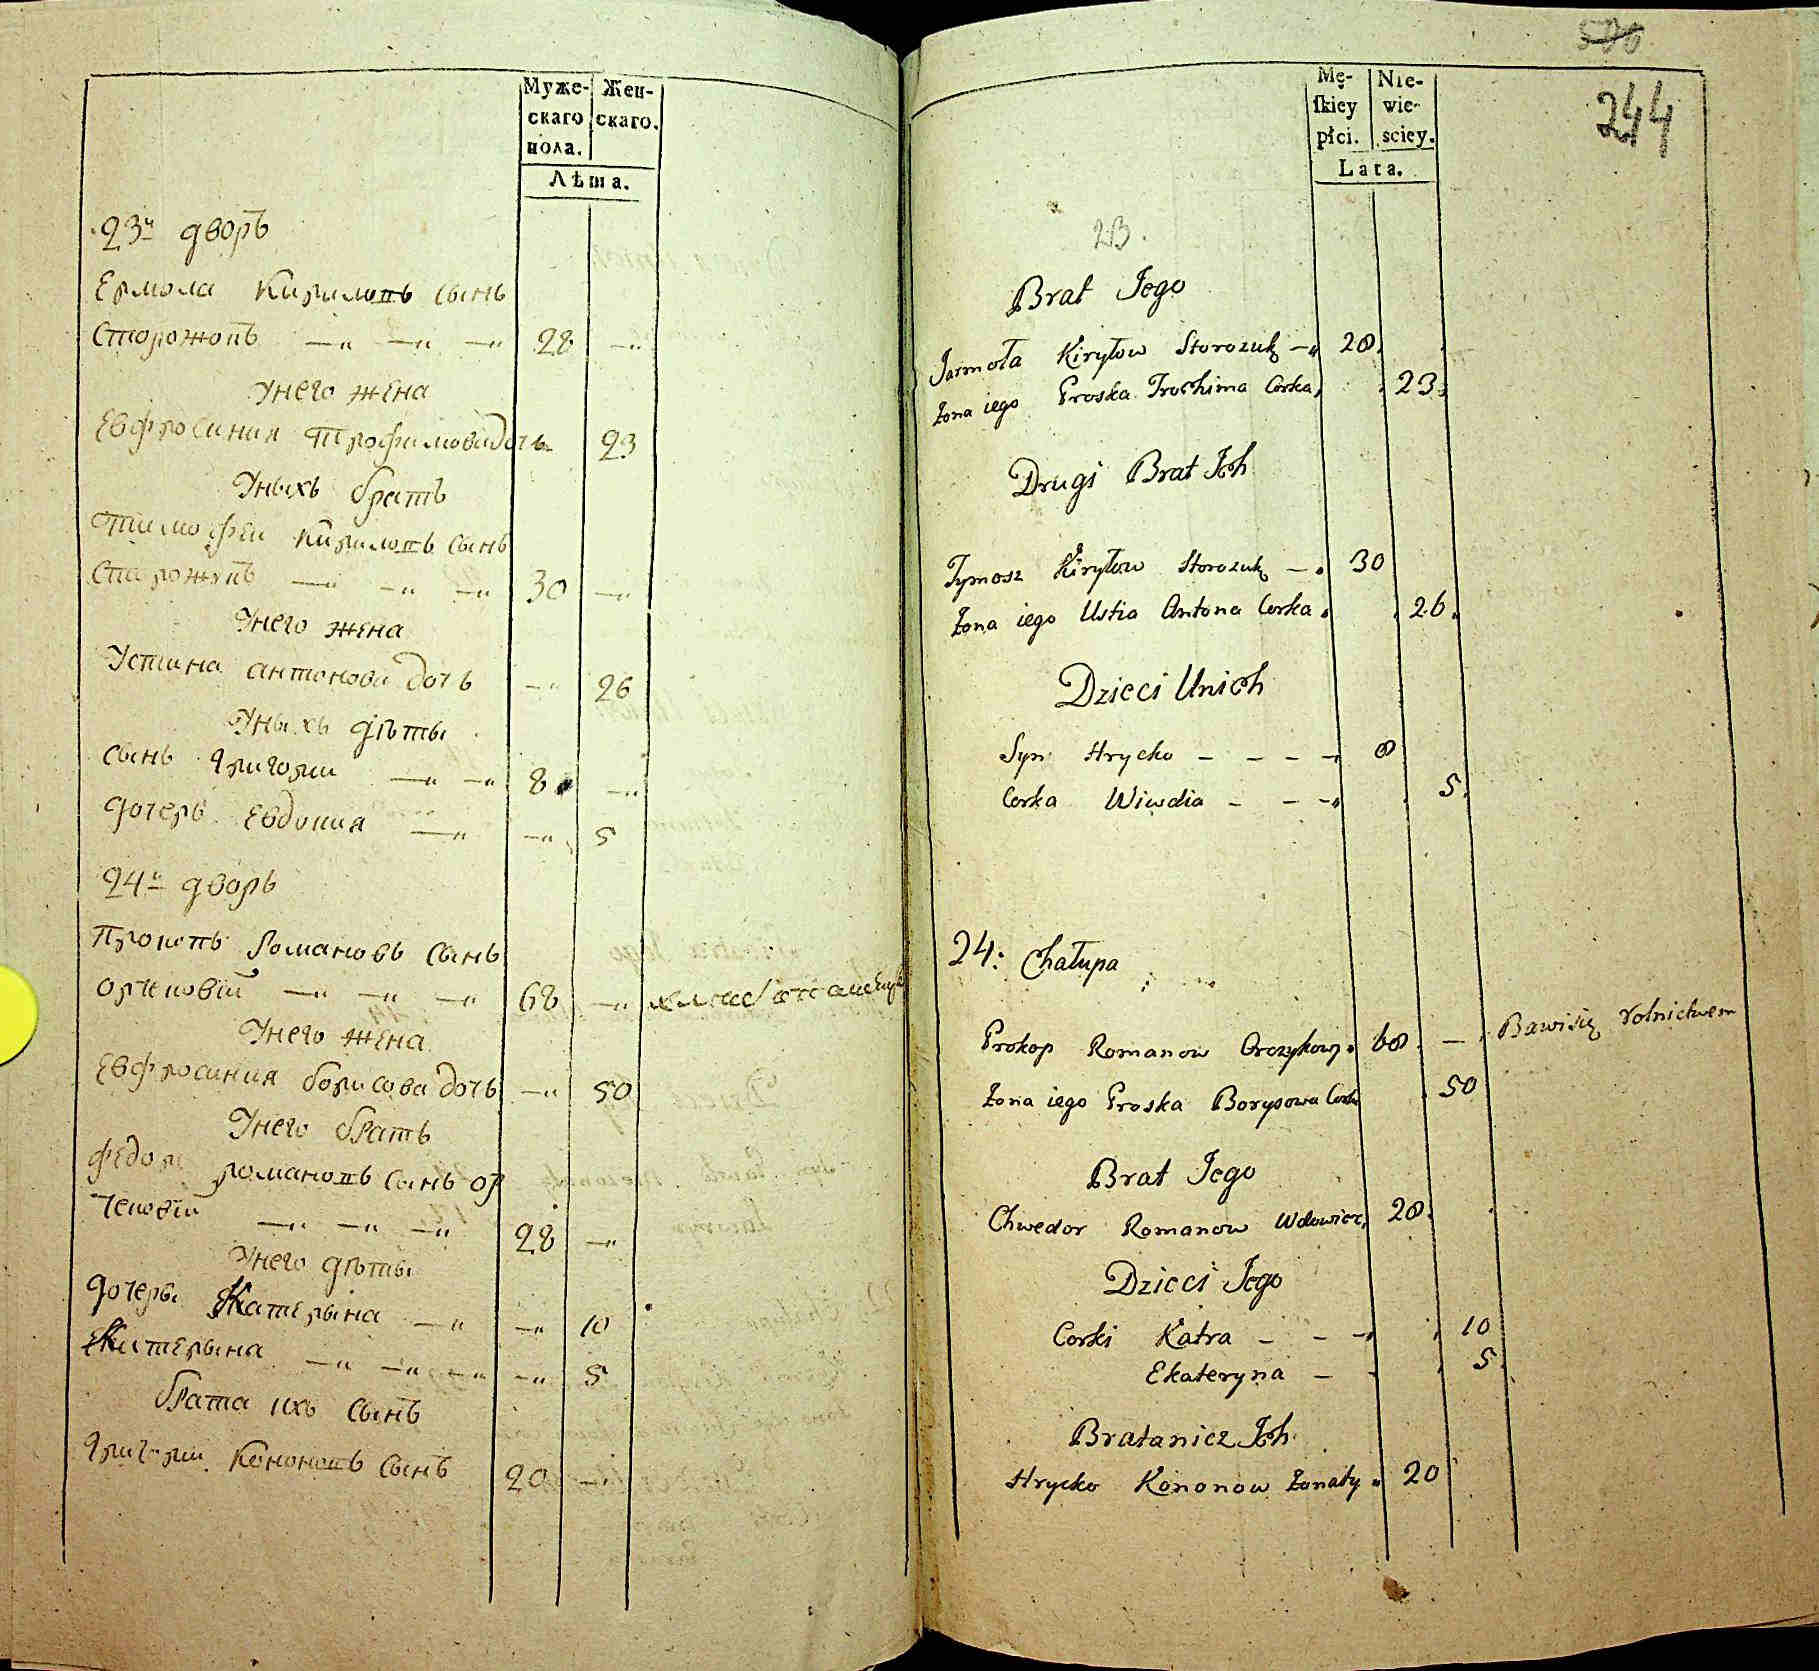 Муже-
скаго
пола.
Жен-
скаго.
Лѣта.
23й дворъ
Ермола Кириловъ сынъ
Сторожовъ 28
Унего жена
Евфросиния Трофимова дочь 23
Уныхъ братъ
Тимофей Кириловъ сынъ
Сторожовъ 30
Унего жена
Устина антонова дочь 26
Уныхъ дѣты
сынъ Григорий 8
дочерь Евдокия 5
24й дворъ
Прокопъ Романовъ сынъ
орчиковій 68
Унего жена
Евфросиния борисова дочь 50
Унего братъ
Федоръ романовъ сынъ ор
чиковій 28
Унего дѣты
дочеры Катерына 10
Екатерына 5
брата ихъ сынъ
Григорий Кононовъ сынъ 20
530
244
Mę-
ſkiey
płci.
Nie-
wie-
sciey.
Lata.
23.
Brat Jego
Jarmoła Kiryłow Storozuk 28
Żona iego Proska Trochima Corka 23
Drugi Brat Ich
Tymosz Kiryłow Storozuk 30
Żona iego Ustia Antona Corka 26
Dzieci Unich
Syn Hrycko 8
Corka Wiwdia 5
24: Chałupa
Prokop Romanow Orczykowy 68 Bawi się rolnictwem
Żona iego Proska Borysowa Corka 50
Brat Jego
Chwedor Romanow Wdowiec 28
Dzieci Jego
Corki Katra 10
Ekateryna 5
Bratanicz Ich
Hrycko Kononow Żonaty 20